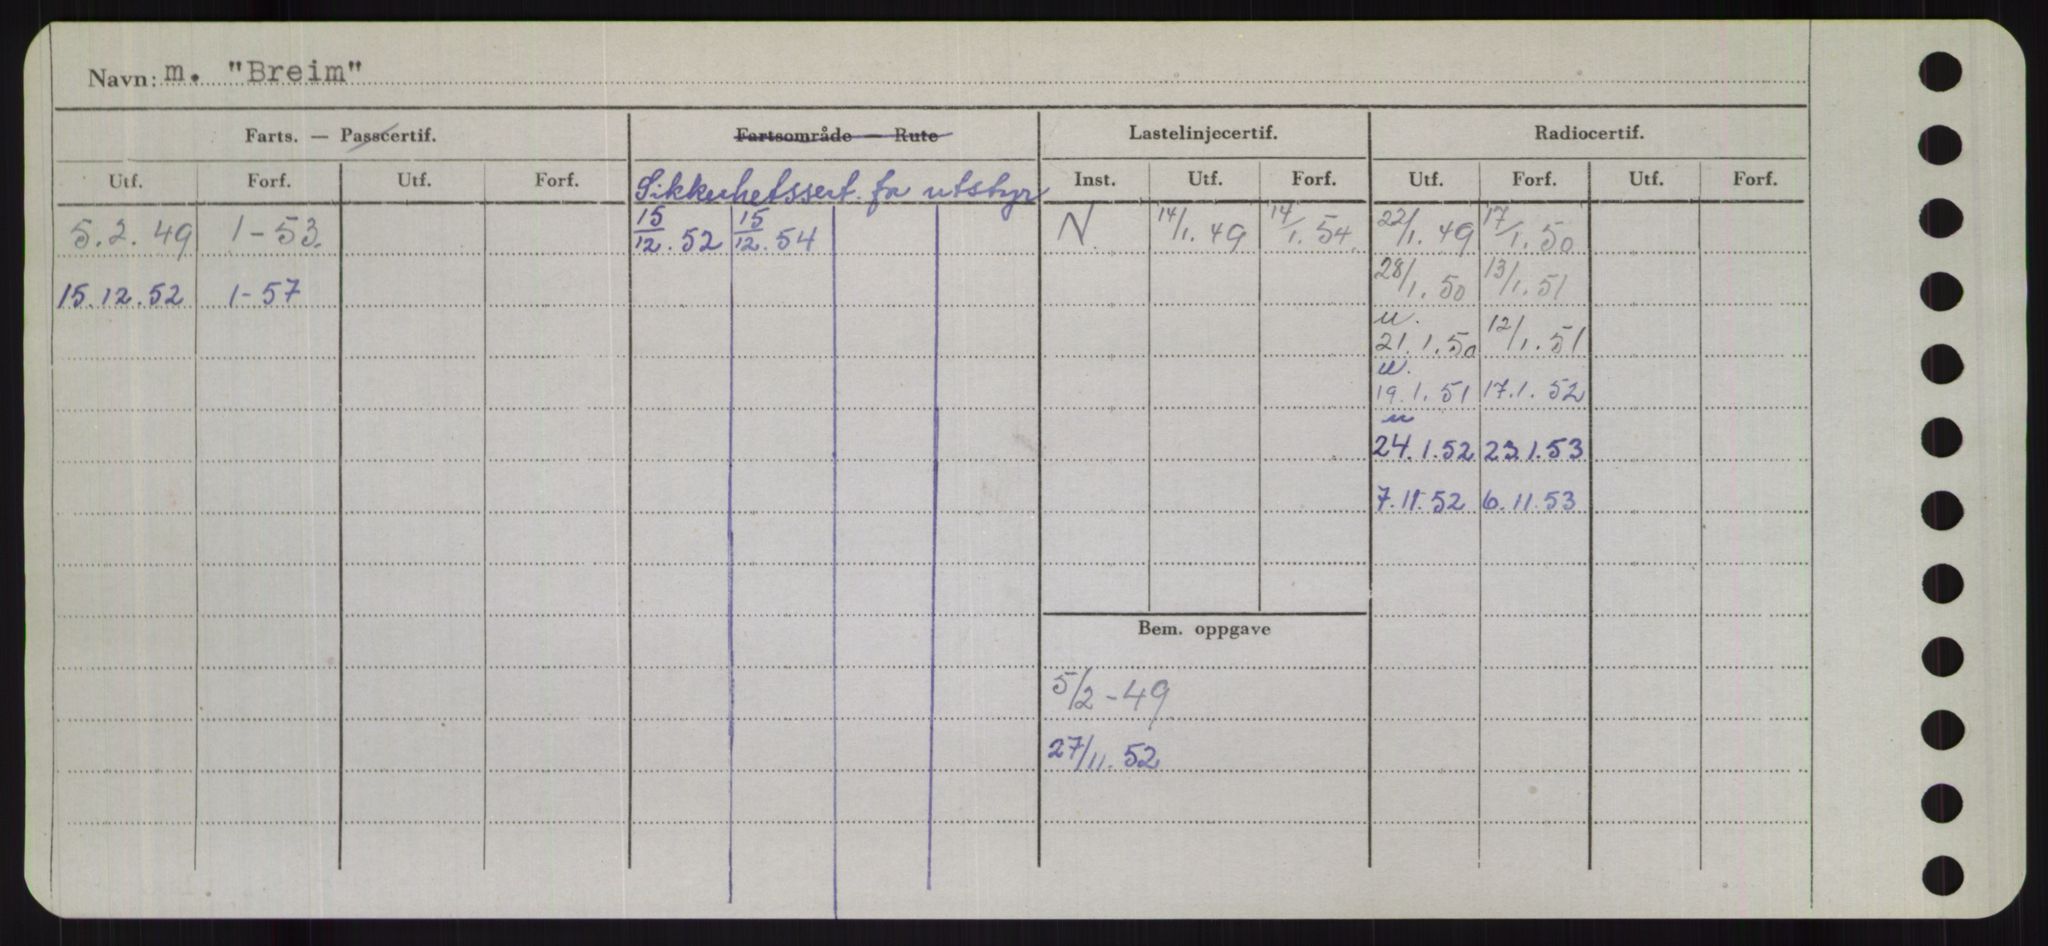 Navn: m. "Breim"
Farts. — Passcertif. Fartsområde — Rute Lastelinjecertif. Radiocertif.
Utf. Forf. Utf. Forf. Sikkerhetssert. for utstyr Inst. Utf. Forf. Utf. Forf. Utf. Forf.
5.2.49 1-53. 15/12.52 15/12.54 N. 14/1.49 14/1.54. 22/1.49 17/1.50
28/1.50 13/1.51
15.12.52 1-57
u.
21.1.50 12/1.51
u.
19.1.51 17.1.52
u
24.1.52 23.1.53
7.11.52 6.11.53
Bem. oppgave
5/2-49
27/11.52